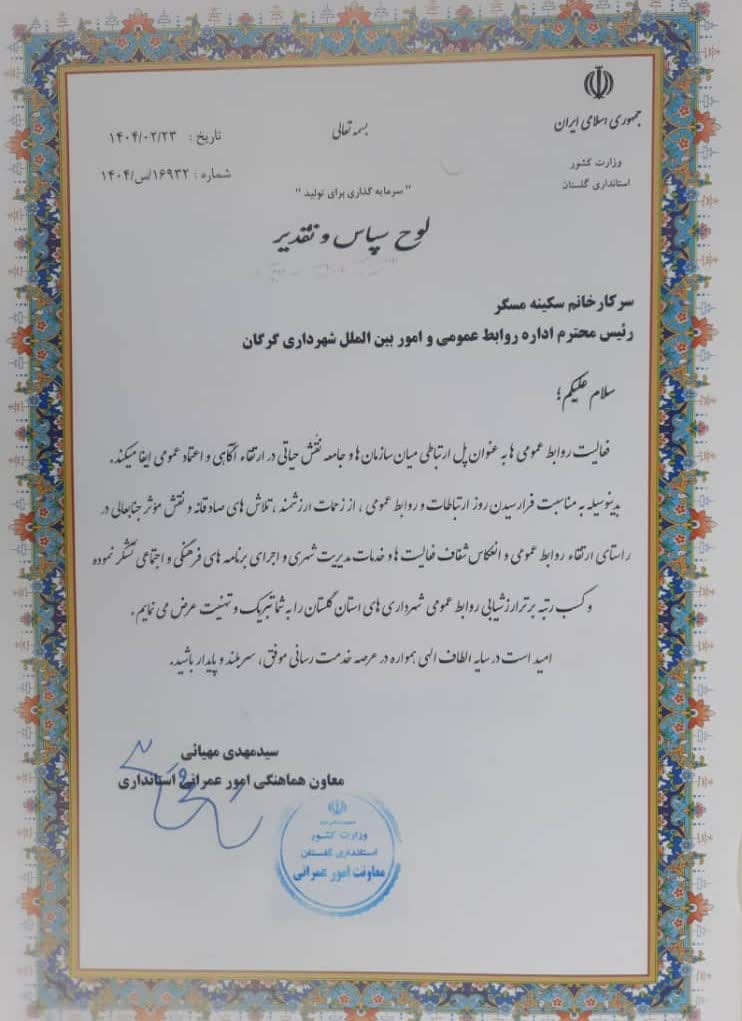 جمهوری اسلامی ایران
وزارت کشور
استانداری گلستان
بسمه تعالی
تاریخ : ۱۴۰۴/۰۲/۲۳
شماره : ۱۶۹۳۲/س/۱۴۰۴
"سرمایه گذاری برای تولید"
لوح سپاس و تقدیر
سرکارخانم سکینه مسگر
رئیس محترم اداره روابط عمومی و امور بین الملل شهرداری گرگان
سلام علیکم؛
فعالیت روابط عمومی ها به عنوان پل ارتباطی میان سازمان ها و جامعه نقش حیاتی در ارتقاء آگاهی و اعتماد عمومی ایفا میکند.
بدینوسیله به مناسبت فرا رسیدن روز ارتباطات و روابط عمومی ، از زحمات ارزشمند ، تلاش های صادقانه و نقش مؤثر جنابعالی در
راستای ارتقاء روابط عمومی و انعکاس شفاف فعالیت ها و خدمات مدیریت شهری و اجرای برنامه های فرهنگی و اجتماعی تشکر نموده
و کسب رتبه برتر ارزشیابی روابط عمومی شهرداری های استان گلستان را به شما تبریک و تهنیت عرض می نمایم .
امید است در سایه الطاف الهی همواره در عرصه خدمت رسانی موفق ، سربلند و پایدار باشید.
سیدمهدی مهیائی
معاون هماهنگی امور عمرانی استانداری
وزارت کشور
استانداری گلستان
معاونت امور عمرانی